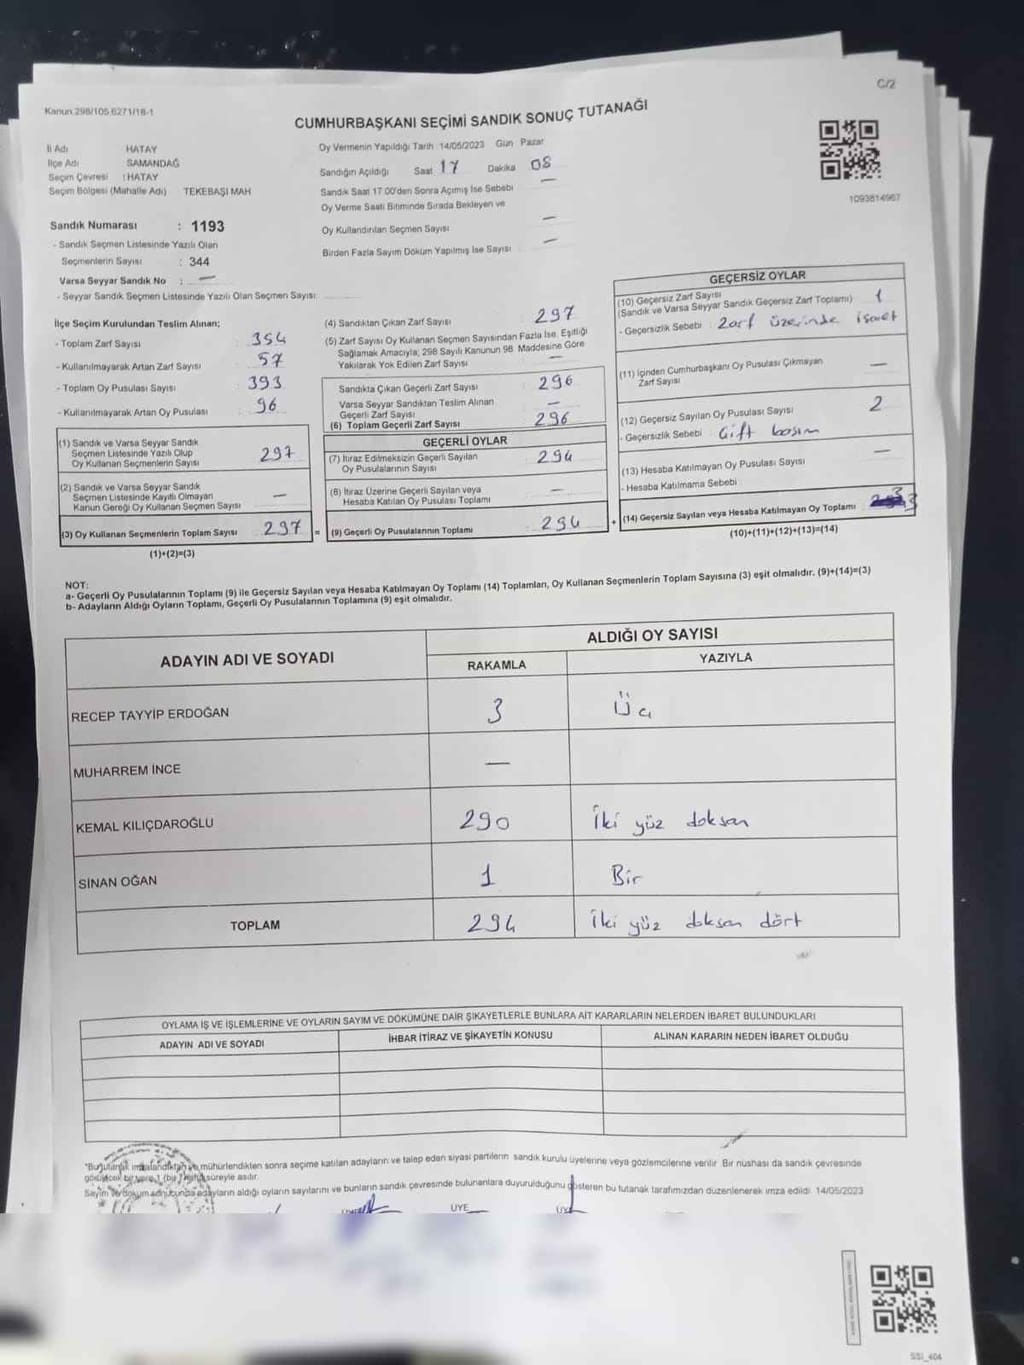 C/2
Kanun 298/105,6271/18-1
CUMHURBAŞKANI SEÇİMİ SANDIK SONUÇ TUTANAĞI
İl Adı HATAY
İlçe Adı SAMANDAĞ
Seçim Çevresi : HATAY
Seçim Bölgesi (Mahalle Adı) TEKEBAŞI MAH
Oy Vermenin Yapıldığı Tarih : 14/05/2023 Gün Pazar
Sandığın Açıldığı Saat 17 Dakika 08
Sandık Saat 17.00'den Sonra Açılmış İse Sebebi —
Oy Verme Saati Bitiminde Sırada Bekleyen ve
Oy Kullandırılan Seçmen Sayısı —
Birden Fazla Sayım Döküm Yapılmış İse Sayısı —
1093814967
Sandık Numarası : 1193
- Sandık Seçmen Listesinde Yazılı Olan
Seçmenlerin Sayısı : 344
Varsa Seyyar Sandık No : —
- Seyyar Sandık Seçmen Listesinde Yazılı Olan Seçmen Sayısı:
İlçe Seçim Kurulundan Teslim Alınan;
- Toplam Zarf Sayısı 354
- Kullanılmayarak Artan Zarf Sayısı 57
- Toplam Oy Pusulası Sayısı 393
- Kullanılmayarak Artan Oy Pusulası 96
(1) Sandık ve Varsa Seyyar Sandık
Seçmen Listesinde Yazılı Olup
Oy Kullanan Seçmenlerin Sayısı 297
(2) Sandık ve Varsa Seyyar Sandık
Seçmen Listesinde Kayıtlı Olmayan
Kanun Gereği Oy Kullanan Seçmen Sayısı —
(3) Oy Kullanan Seçmenlerin Toplam Sayısı 297 =
(1)+(2)=(3)
(4) Sandıktan Çıkan Zarf Sayısı 297
(5) Zarf Sayısı Oy Kullanan Seçmen Sayısından Fazla İse, Eşitliği
Sağlamak Amacıyla; 298 Sayılı Kanunun 98. Maddesine Göre
Yakılarak Yok Edilen Zarf Sayısı —
Sandıkta Çıkan Geçerli Zarf Sayısı 296
Varsa Seyyar Sandıktan Teslim Alınan
Geçerli Zarf Sayısı —
(6) Toplam Geçerli Zarf Sayısı 296
GEÇERLİ OYLAR
(7) İtiraz Edilmeksizin Geçerli Sayılan
Oy Pusulalarının Sayısı 294
(8) İtiraz Üzerine Geçerli Sayılan veya
Hesaba Katılan Oy Pusulası Toplamı —
(9) Geçerli Oy Pusulalarının Toplamı 294 +
GEÇERSİZ OYLAR
(10) Geçersiz Zarf Sayısı
(Sandık ve Varsa Seyyar Sandık Geçersiz Zarf Toplamı) 1
- Geçersizlik Sebebi : Zarf üzerinde işaret
(11) İçinden Cumhurbaşkanı Oy Pusulası Çıkmayan
Zarf Sayısı —
(12) Geçersiz Sayılan Oy Pusulası Sayısı 2
- Geçersizlik Sebebi Çift basım
(13) Hesaba Katılmayan Oy Pusulası Sayısı —
- Hesaba Katılmama Sebebi
(14) Geçersiz Sayılan veya Hesaba Katılmayan Oy Toplamı 3
(10)+(11)+(12)+(13)=(14)
NOT:
a- Geçerli Oy Pusulalarının Toplamı (9) ile Geçersiz Sayılan veya Hesaba Katılmayan Oy Toplamı (14) Toplamları, Oy Kullanan Seçmenlerin Toplam Sayısına (3) eşit olmalıdır. (9)+(14)=(3)
b- Adayların Aldığı Oyların Toplamı, Geçerli Oy Pusulalarının Toplamına (9) eşit olmalıdır.
ADAYIN ADI VE SOYADI ALDIĞI OY SAYISI
RAKAMLA YAZIYLA
RECEP TAYYİP ERDOĞAN 3 Üç
MUHARREM İNCE —
KEMAL KILIÇDAROĞLU 290 İki yüz doksan
SİNAN OĞAN 1 Bir
TOPLAM 294 İki yüz doksan dört
OYLAMA İŞ VE İŞLEMLERİNE VE OYLARIN SAYIM VE DÖKÜMÜNE DAİR ŞİKAYETLERLE BUNLARA AİT KARARLARIN NELERDEN İBARET BULUNDUKLARI
ADAYIN ADI VE SOYADI İHBAR İTİRAZ VE ŞİKAYETİN KONUSU ALINAN KARARIN NEDEN İBARET OLDUĞU
*Bu tutanak imzalandıktan ve mühürlendikten sonra seçime katılan adayların ve talep eden siyasi partilerin sandık kurulu üyelerine veya gözlemcilerine verilir. Bir nüshası da sandık çevresinde
görülecek bir yere 1 (bir) hafta süreyle asılır.
Sayım ve döküm sonucunda adayların aldığı oyların sayılarını ve bunların sandık çevresinde bulunanlara duyurulduğunu gösteren bu tutanak tarafımızdan düzenlenerek imza edildi. 14/05/2023
ÜYE
SSI_404